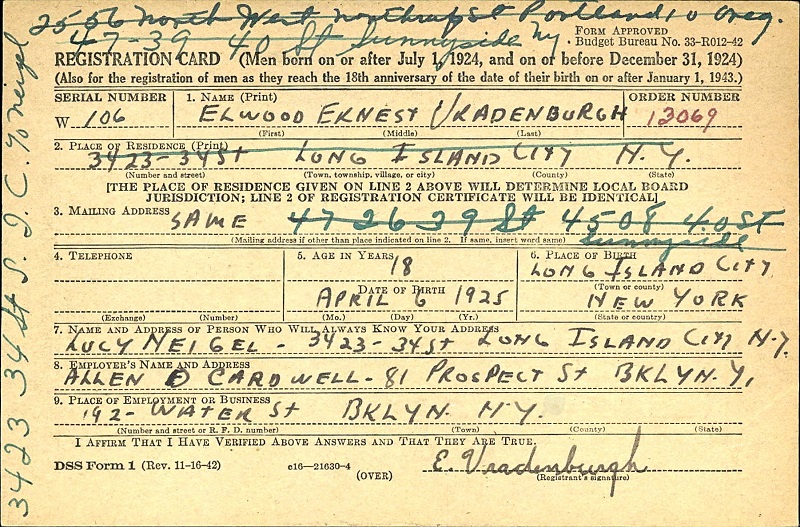 2556 North West Northrup St Portland 10 Oreg.
47-39 40 St Sunnyside Ny
FORM APPROVED
Budget Bureau No. 33-R012-42
REGISTRATION CARD (Men born on or after July 1, 1924, and on or before December 31, 1924)
(Also for the registration of men as they reach the 18th anniversary of the date of their birth on or after January 1, 1943.)
SERIAL NUMBER
W 106
1. NAME (Print)
ELWOOD ERNEST VRADENBURGH
(First) (Middle) (Last)
ORDER NUMBER
13069
2. PLACE OF RESIDENCE (Print)
3423-34 St LONG ISLAND CITY N.Y.
(Number and street) (Town, township, village, or city) (County) (State)
[THE PLACE OF RESIDENCE GIVEN ON LINE 2 ABOVE WILL DETERMINE LOCAL BOARD
JURISDICTION; LINE 2 OF REGISTRATION CERTIFICATE WILL BE IDENTICAL]
3. MAILING ADDRESS
SAME 47 26 39 St 45 08 40 St
Sunnyside
(Mailing address if other than place indicated on line 2. If same, insert word same)
4. TELEPHONE
(Exchange) (Number)
5. AGE IN YEARS
18
DATE OF BIRTH
APRIL 6 1925
(Mo.) (Day) (Yr.)
6. PLACE OF BIRTH
LONG ISLAND CITY
(Town or county)
NEW YORK
(State or country)
7. NAME AND ADDRESS OF PERSON WHO WILL ALWAYS KNOW YOUR ADDRESS
LUCY NEIGEL - 3423-34 St LONG ISLAND CITY N.Y.
8. EMPLOYER'S NAME AND ADDRESS
ALLEN D CARDWELL - 81 PROSPECT St BKLYN. Y,
9. PLACE OF EMPLOYMENT OR BUSINESS
192- WATER St BKLYN. N.Y.
(Number and street or R. F. D. number) (Town) (County) (State)
I AFFIRM THAT I HAVE VERIFIED ABOVE ANSWERS AND THAT THEY ARE TRUE.
DSS Form 1 (Rev. 11-16-42) c16-21630-4
(OVER)
E. Vradenburgh
(Registrant's signature)
3423 34 St L. I. C. % Neigel